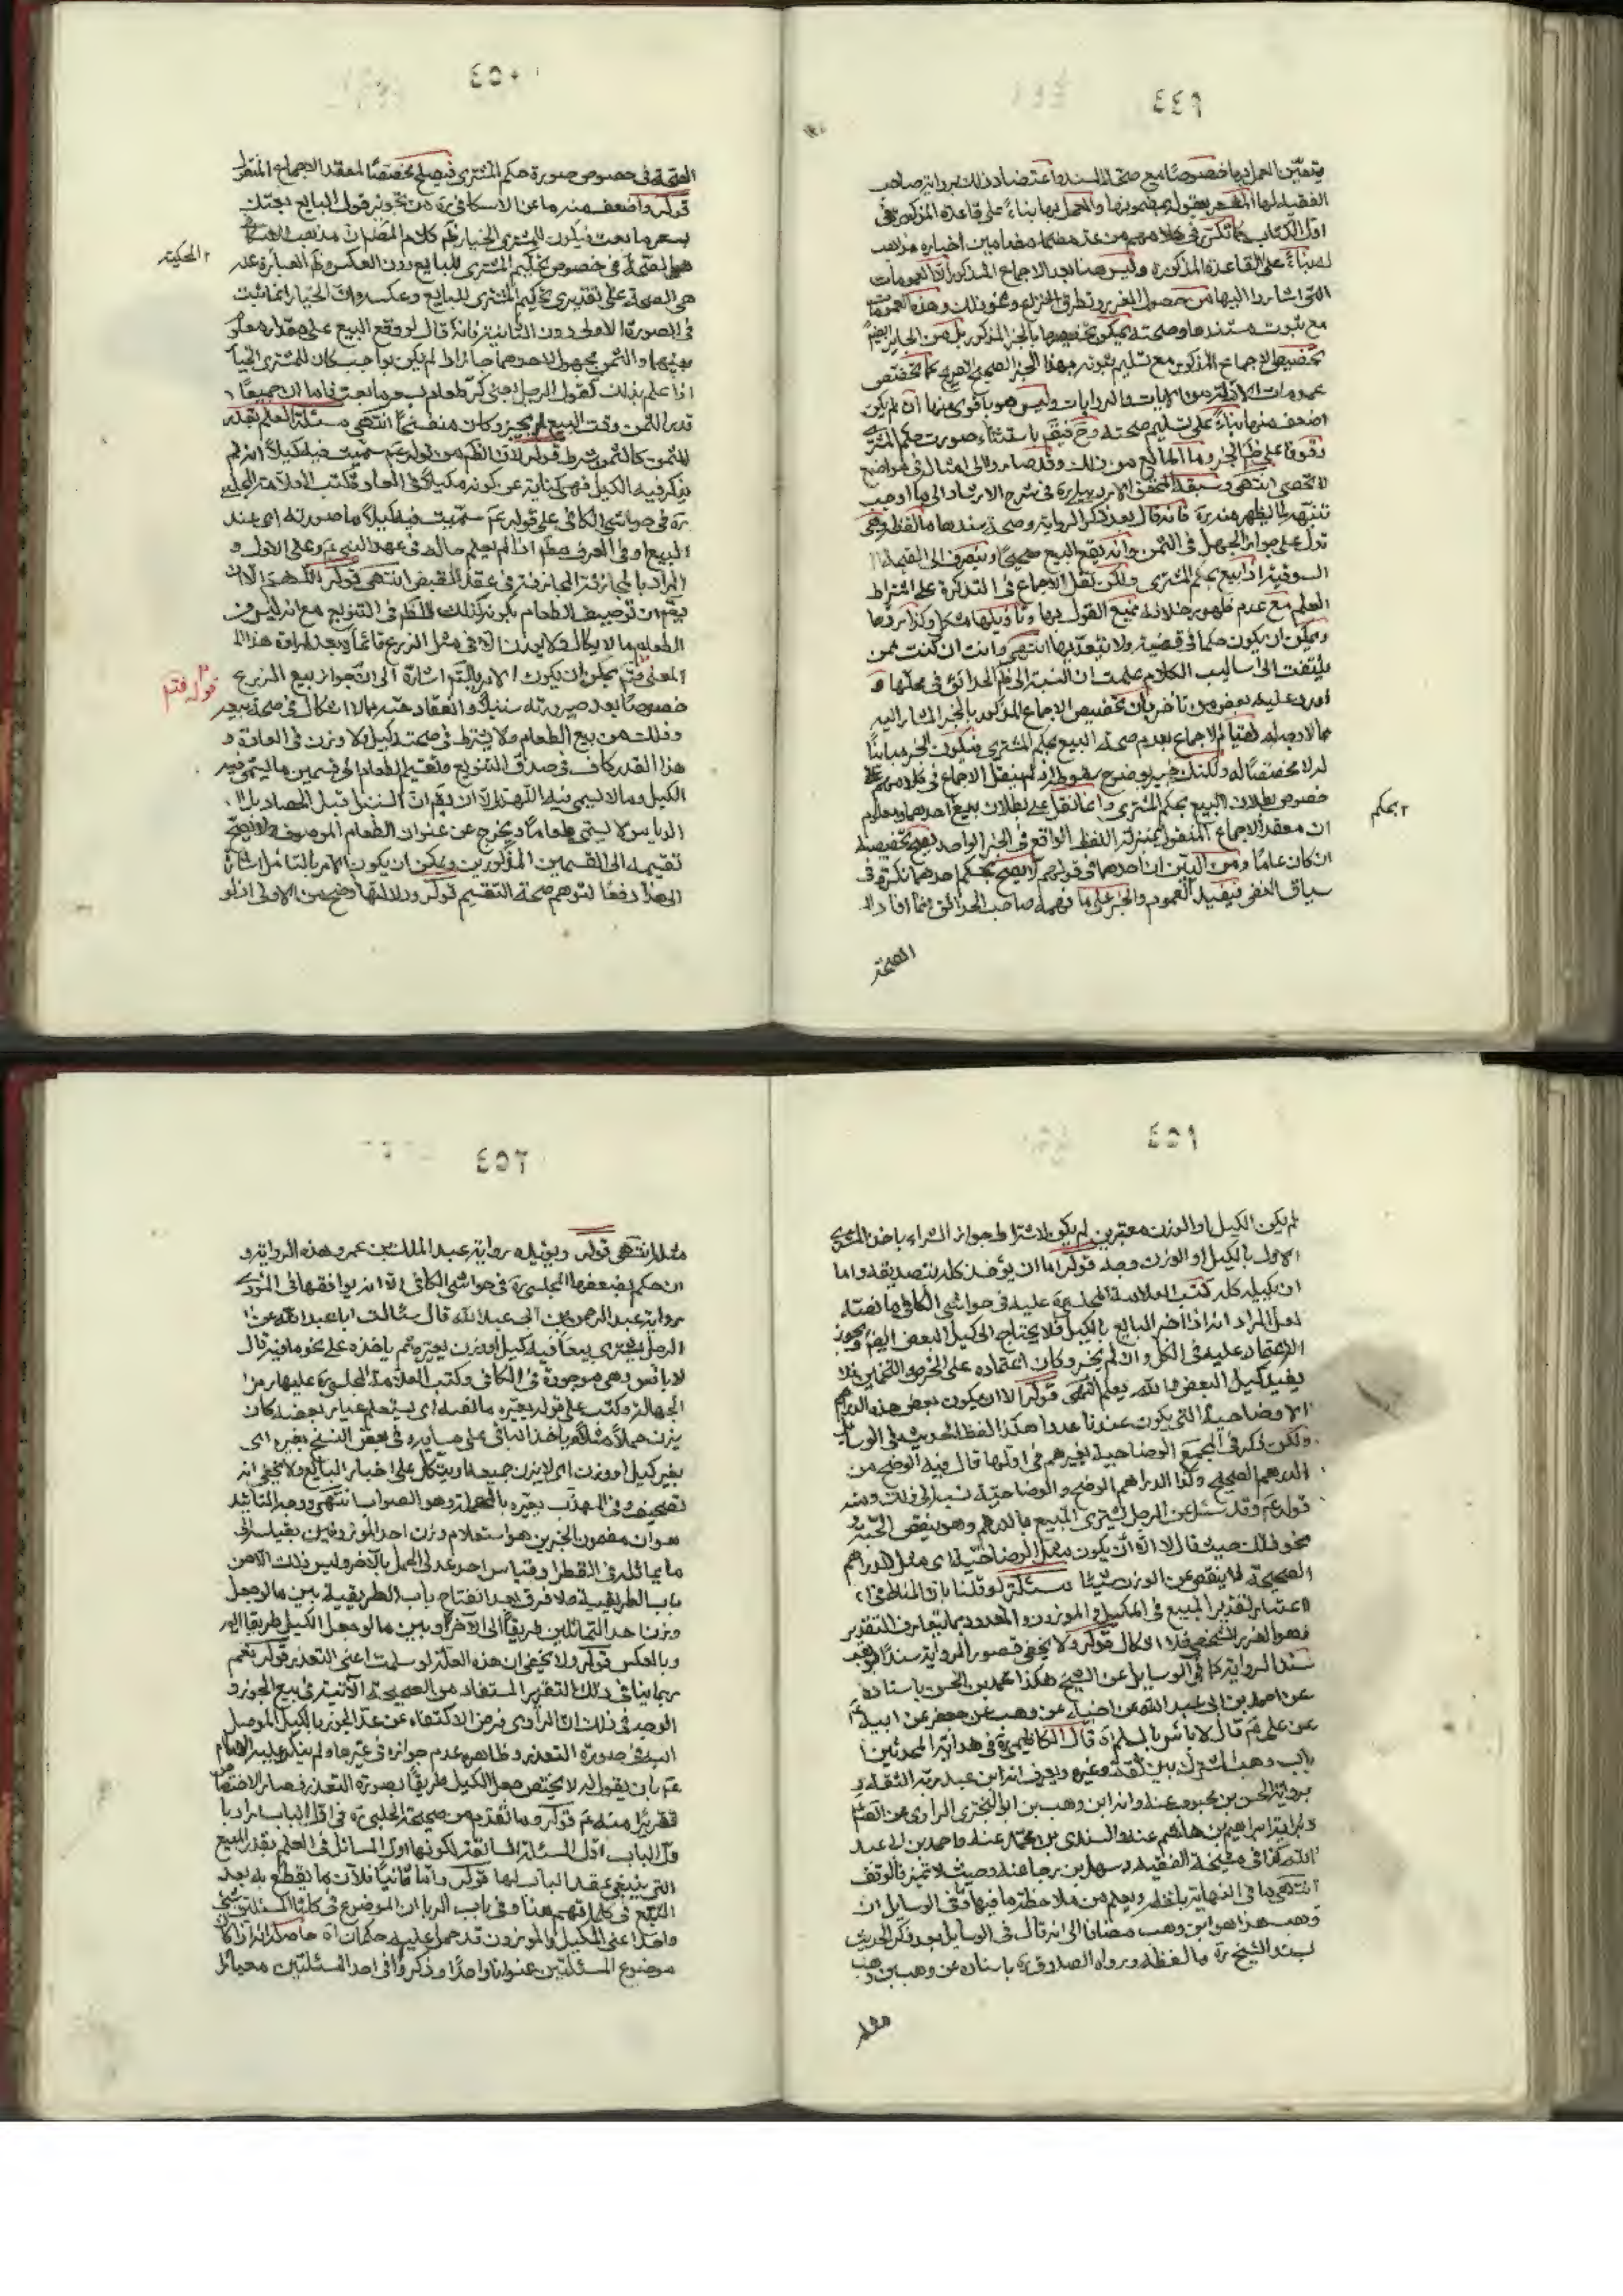 ٤٤٩
يتعيّن العمل بها خصوصًا مع صحة السند واعتضاد ذلك برواية صاحب
الفقيه لها المشعر بقوله بمضمونها والعمل بها بناءً على قاعدة المذكورة في
اول الكتاب كما تكرر في كلامهم من عدهم مضامين اخباره مذاهب
له بناءً على القاعدة المذكورة وليس هنا بعد الاجماع المذكور الا العمومات
التي اشاروا اليها من حصول الغرر وتطرق النزاع ونحو ذلك وهذه العمومات
مع ثبوت مستندها وصحته يمكن تخصيصها بالخبر المذكور بل من الجايز ايضًا
تخصيص الاجماع المذكور مع تسليم ثبوته بهذا الخبر الصحيح الصريح كما تخصص
عمومات الادلة من الايات والروايات وليس هو باقوى منها ان لم يكن
اضعف منها بناءً على تسليم صحته وح فيقم باستثناء صورت حكم المشتري
وقوفا على ظم الخبر وما المانع من ذلك وقد صاروا الى امثاله في مواضع
لا تحصى انتهى وسبقه المحقق الاردبيلي ره في شرح الارشاد الى ما اوجب
تنبهه لما يظهر منه ره فانه قال بعد ذكر الرواية وصحة سندها ما لفظه وهي
تدل على جواز الجهل في الثمن وانه يقع البيع صحيحًا وينصرف الى القيمة
السوقية اذا بيع بحكم المشتري ولكن نقل الاجماع في التذكرة على اشتراط
العلم مع عدم ظهور خلافه يمنع القول بها وتأويلها مشكل وكذا ردها
ويمكن ان يكون حكما في قضية ولا يتعدّيها انتهى وانت ان كنت ممن
يلتفت الى اساليب الكلام علمت ان النسبة الى ظم الحدائق في محلها و
اورد عليه بعض من تأخر بأن تخصيص الاجماع المذكور بالخبر المشار اليه
مما لا وجه له لقيام الاجماع بعدم صحة البيع بحكم المشتري فيكون الخبر مباينًا
له لا مخصصًا له ولكنك خبير بوضوح سقوطه اذ لم ينقل الاجماع في كلامهم على
خصوص بطلان البيع بحكم المشتري وانما نقل على بطلان بيع احدهما ومعلوم
٢ بحكم
ان معقد الاجماع المنقول بمنزلة اللفظ الواقع في الخبر الواحد يصح تخصيصه
ان كان عامًا ومن البيّن ان احدهما في قولهم لا يصح بحكم احدهما نكرة في
سياق النفي فيفيد العموم والخبر على ما فهمه صاحب الحدائق انما افاد
الصحة
٤٥٠
الصحة في خصوص صورة حكم المشتري فيصلح مخصصًا لمعقد الاجماع المنقول
قوله واضعف منه ما عن الاسكافي ره من تجويز قول البايع بعتك
بسعر ما بعت فيكون للمشتري الخيار ظم كلام المصنف ان مذهب الاسكافي
هو الصحة في خصوص تحكيم المشتري للبايع دون العكس وظم العبارة عنه
٢ المحكية
هي الصحة على تقديري تحكيم المشتري للبايع وعكسه وان الخيار انما يثبت
في الصورة الاولى دون الثانية فانه قال لو وقع البيع على مقدار معلوم
بينهما والثمن مجهول لاحدهما جاز اذا لم يكن بواجب كان للمشتري الخيار
اذا علم بذلك كقول الرجل بعني كر طعام بسعر ما بعت فاما ان جميعًا
قدر الثمن وقت البيع لم يجز وكان منفسخًا انتهى مسئلة العلم بقدر
المثمن كالثمن شرط قوله لان الظم من قوله عم سميت فيه كيلًا انه لم
يذكر فيه الكيل فهي كناية عن كونه مكيلًا في العادة كتب العلامة المجلسي
ره في حواشي الكافي على قوله عم سميت فيه كيلًا ما صورته اي عند
البيع او في العرف مطم اذا لم يعلم حاله في عهد النبي ص وعلى الاول و
المراد بالمجازفة المجازفة في عقد القبض انتهى قوله اللهم الا ان
يقم ان توصيف الطعام بكونه كذلك الظم في التنويع مع انه ليس من
الطعام ما لا يكال كلابد ان في مثل الزرع قائمًا يبعد ارادة هذا
المعنى فتم يمكن ان يكون الامر بالتم اشارة الى ان جواز بيع الزرع
٣ قوله فتم
خصوصًا بعد صيرورته سنبلًا وانعقاد حبه مما لا اشكال في صحة بيعه
وذلك من بيع الطعام ولا يشترط في صحته كيل ولا وزن في العادة و
هذا القدر كاف في صدق التنويع وتقسيم الطعام الى قسمين ما يسمى فيه
الكيل وما لا يسمى فيه اللهم الا ان يقم ان السنبل قبل الحصاد بل
الدياس لا يسمى طعامًا ويخرج عن عنوان الطعام الموصوف فلا يصح
تقسيمه الى القسمين المذكورين ويمكن ان يكون الامر بالتامل اشارة
الى هذا دفعًا لتوهم صحة التقسيم قوله ودلالتها اوضح من الاولى اذ لو
٤٥١
لم يكن الكيل او الوزن معتبرين لم يكن لاشتراط جواز الشراء باخذ المشتري
الاول بالكيل او الوزن وجه قوله اما ان يؤخذ كله بتصديقه واما
ان يكيله كله كتب العلامة المجلسي ره عليه في حواشي الكافي ما نصه
لعل المراد انه اذا اخبر البايع بالكيل فلا يحتاج الى كيل البعض ايضم ويجوز
الاعتماد عليه في الكل وان لم يخبر وكان اعتماده على الخرص والتخمين فلا
يفيد كيل البعض والله يعلم انتهى قوله الا ان يكون بعض هذه الدراهم
الاوضاحية التي يكون عندنا عددا هكذا لفظ الحديث في الوسايل
ولكن ذكر في المجمع الوضاحية بغير همز في اولها قال فيه الوضح من
الدرهم الصحيح وكذا الدراهم الوضح والوضاحية نسبة الى ذلك ومنه
قوله عم وقد سئل عن الرجل يشتري المبيع بالدرهم وهو ينقص الحبة و
نحو ذلك حيث قال لا الا ان يكون مثل الوضاحية اي مثل الدراهم
الصحيحة لا ينقص عن الوزن شيئًا مسئلة لو قلنا بان المناط في
اعتبار تقدير المبيع في المكيل والموزون والمعدود بما يتعارف التقدير
هو الغرر الشخصي فلا اشكال قوله ولا يخفى قصور الرواية سندًا
سند الرواية كما في الوسايل عن الشيخ هكذا محمد بن الحسن باسناده
عن احمد بن ابي عبد الله عن ابيه عن وهب عن جعفر عن ابيه عم
عن علي عم قال لا باس بالسلم اه قال الكاظمي ره في هداية المحدثين
باب وهب المشترك بين ثقة وغيره ويعرف انه ابن عبد ربه الثقة و
برواية الحسن بن محبوب عنه وانه ابن وهب بن ابو البختري الراوي عن الصم
وبرواية ابراهيم بن هاشم عنه والسندي بن محمد عنه واحمد بن ابي عبد
الله كما في مشيخة الفقيه وسهل بن رجا عنه وحيث لا تميز فالوقف
انتهى ويعلم من ملاحظة ما فيها وفي الوسايل ان
وهب هذا هو ابن وهب مضافا الى انه قال في الوسايل بعد ذكر الحديث
بسند الشيخ ره ما لفظه ورواه الصدوق ره باسناده عن وهب بن وهب
مثله
٤٥٢
مثله انتهى قوله ويؤيده رواية عبد الملك بن عمرو هذه الرواية و
ان حكم بضعفها المجلسي ره في حواشي الكافي الا انه يوافقها في المؤدى
رواية عبد الرحمن بن ابي عبد الله قال سئالت ابا عبد الله عن
الرجل يشتري بيعًا فيه كيل او وزن يعيره ثم ياخذه على نحو ما فيه قال
لا باس وهي موجودة في الكافي وكتب العلامة المجلسي ره عليها رمز
الجهالة وكتب على قوله يعيره ما لفظه اي يستعلم عيار بعضه كان
يزن حملًا مثلًا وياخذ الباقي على عياره وفي بعض النسخ بغيره اي
بغير كيل او وزن اي لا يزن جميعها ويتكل على اخبار البايع ولا يخفى انه
تصحيف وفي المهذب يعيره بالمهملة وهو الصواب انتهى ووجه التائيد
هو ان مضمون الخبرين هو استعلام وزن احد الموزونين بقياسه الى
ما يماثله في القطر او قياس احد عدلي الحمل بالآخر وليس ذلك الا من
باب الطريقية فلا فرق بعد انفتاح باب الطريقية بين ما لو جعل
وزن احد المتماثلين طريقًا الى الآخر او بين ما لو جعل الكيل طريقا اليه
وبالعكس قوله ولا يخفى ان هذه العلة لو سلمت اعني التعذر قوله نعم
ربما ينافي ذلك التقرير المستفاد من الصحيحة الآتية في بيع الجوز و
الوجه في ذلك ان الراوي فرض الاكتفاء عن عد الجوز بالكيل الموصل
اليه في صورة التعذر وظاهره عدم جوازه في غيرها ولم ينكر عليه الامام
عم بان يقول له لا يختص جعل الكيل طريقًا بصورة التعذر فصار الاختصاص
تقريرًا منه عم قوله وما تقدم من صحيحة الحلبي ره في اول الباب اراد با
ول الباب اول المسئلة السابقة لكونها اول المسائل في العلم بقدر المبيع
التي ينبغي عقد الباب لها قوله واما ثانيًا فلان ما يقطع به بعد
التتبع في كلماتهم هنا وفي باب الربا ان الموضوع في كلتا المسئلتين شيء
واحد اعني المكيل والموزون قد حمل عليه حكمان اه حاصله انه اذا كان
موضوع المسئلتين عنوانا واحدًا وذكروا في احد المسئلتين معيار